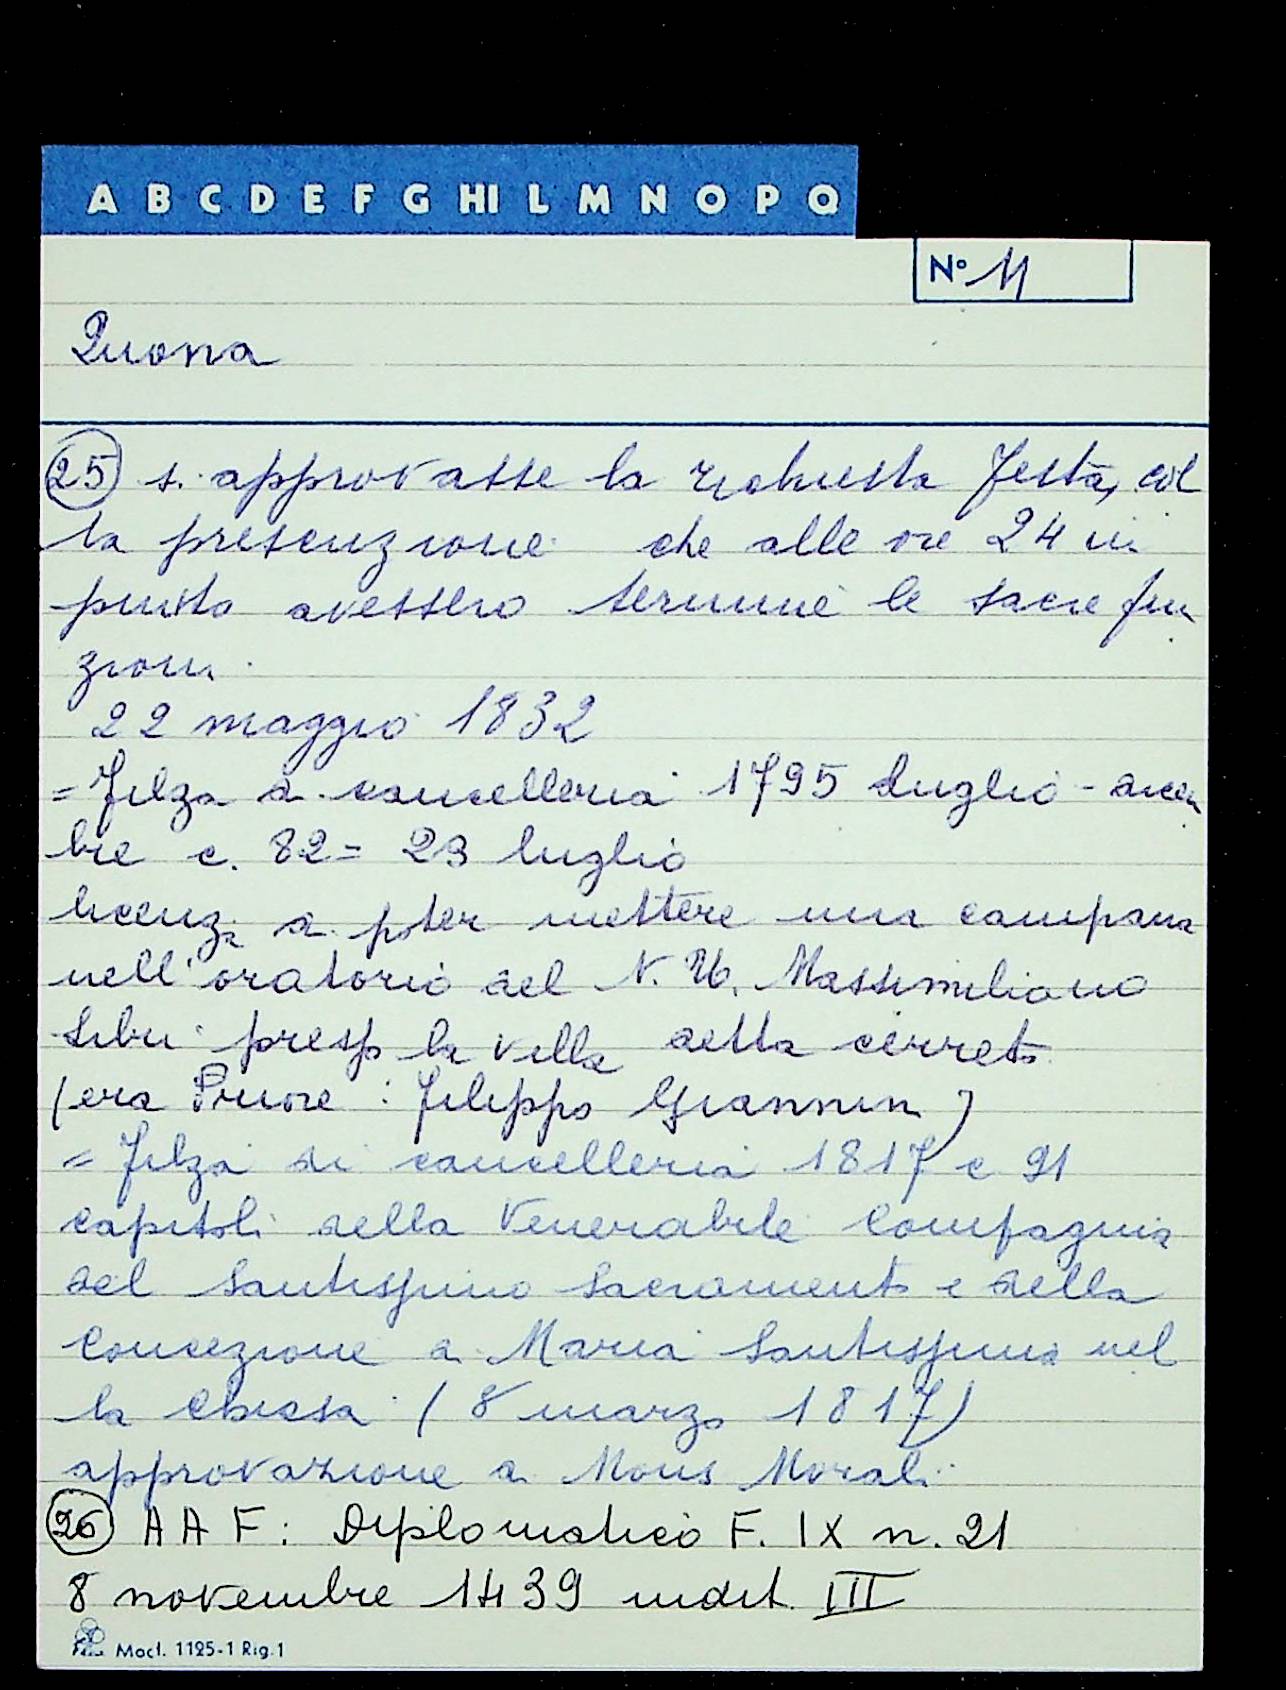 A B C D E F G HI L M N O P Q
N° 11
Quona
25 s. approvasse la richiesta festa, col
la prescrizione che alle ore 24 in
punto avessero termine le sacre fun
zioni.
22 maggio 1832
= Filza di cancelleria 1795 luglio - dicem
bre c. 82 = 23 luglio
licenza di poter mettere una campana
nell'oratorio del N. H. Massimiliano
Libri presso la villa detta cerreto
(era Priore : Filippo Giannini)
= Filza di cancelleria 1817 c 91
capitoli della Venerabile Compagnia
del Santissimo Sacramento e della
Concezione di Maria Santissima nel
la Chiesa (8 marzo 1817)
approvazione di Mons Morali
26 A A F : Diplomatico F. IX n. 21
8 novembre 1439 indit. III
Mod. 1125-1 Rig. 1